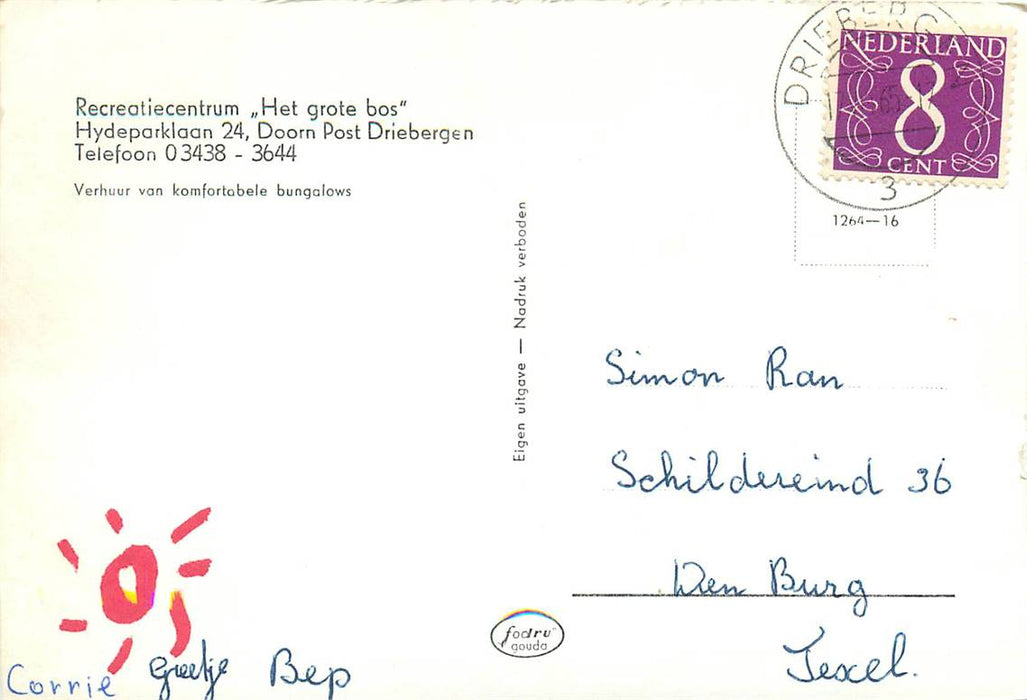 Recreatiecentrum „Het grote bos"
Hydeparklaan 24, Doorn Post Driebergen
Telefoon 03438 - 3644
Verhuur van komfortabele bungalows
Eigen uitgave — Nadruk verboden
NEDERLAND
8
CENT
3
1264—16
Simon Ran
Schildereind 36
Den Burg
Texel.
fodru
gouda
Corrie Greetje Bep